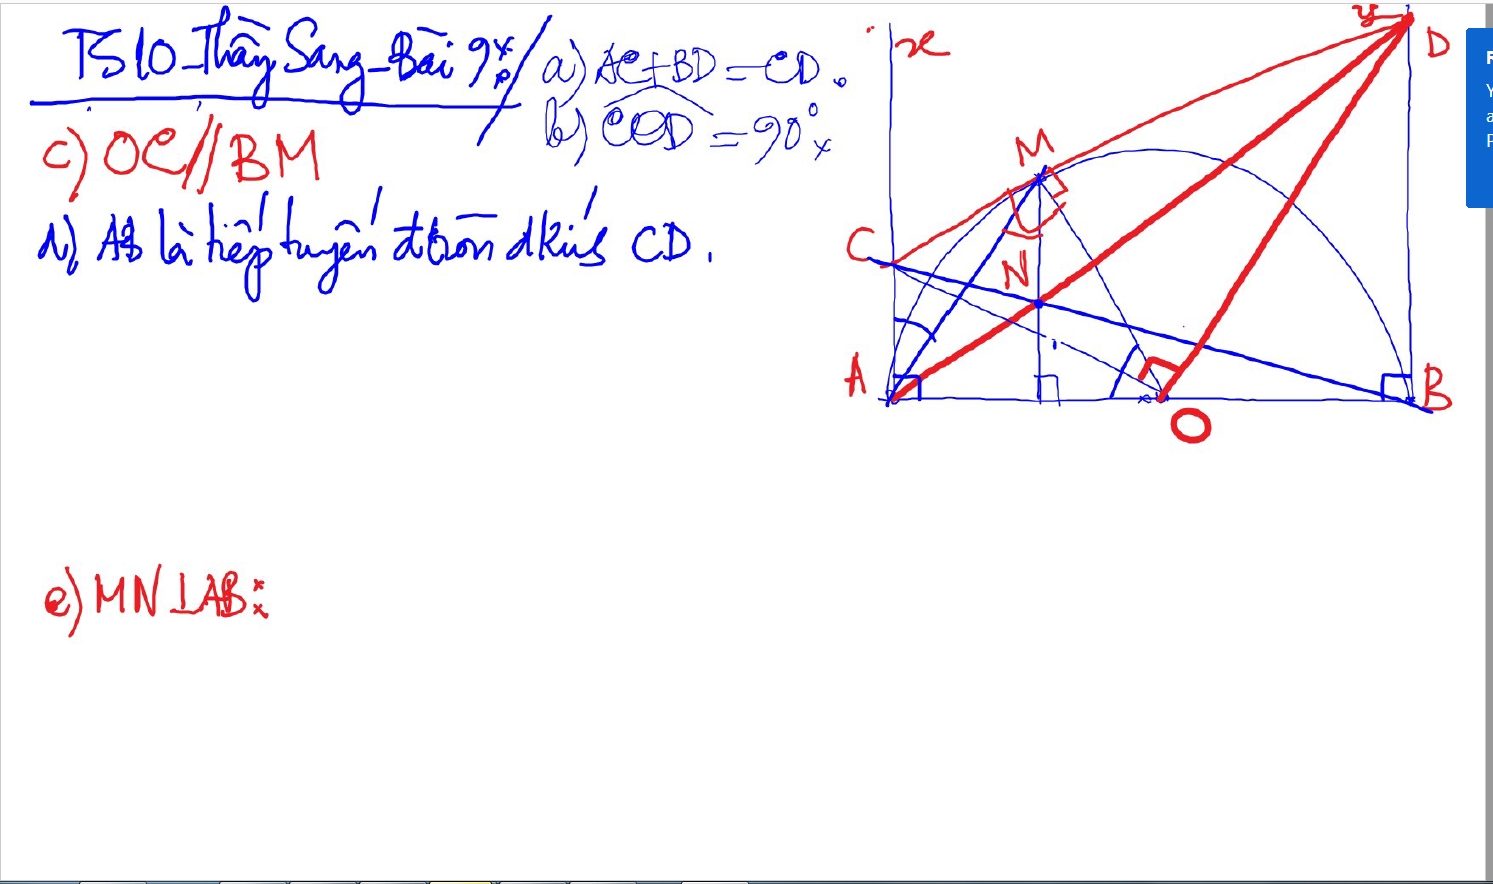 TS10_Thầy Sang_Bài 9:
a) AC+BD=CD.
b) COD = 90°
c) OC//BM
d) AB là tiếp tuyến đtròn đkính CD.
e) MN⊥AB:
x
y
D
M
C
N
A
B
O